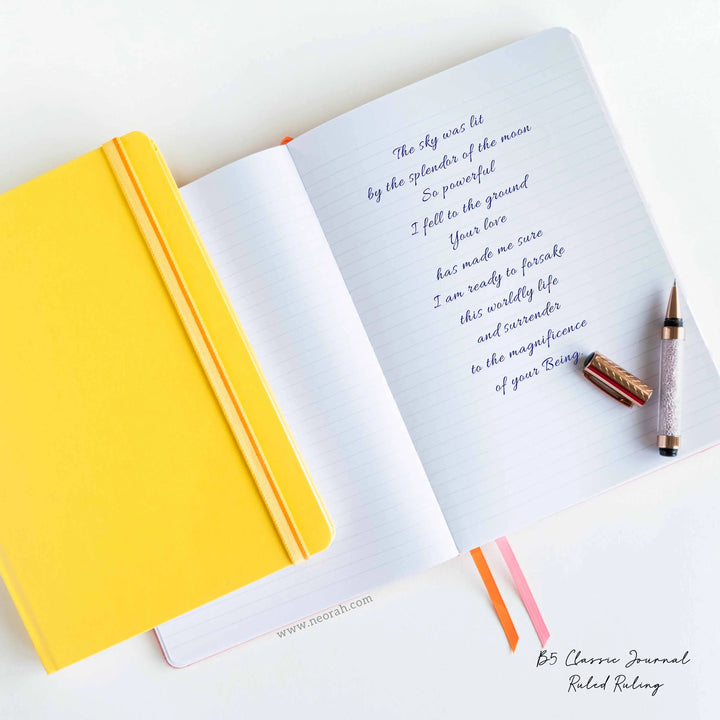 The sky was lit
by the splendor of the moon
So powerful
I fell to the ground
Your love
has made me sure
I am ready to forsake
this worldly life
and surrender
to the magnificence
of your Being
www.neorah.com
B5 Classic Journal
Ruled Ruling